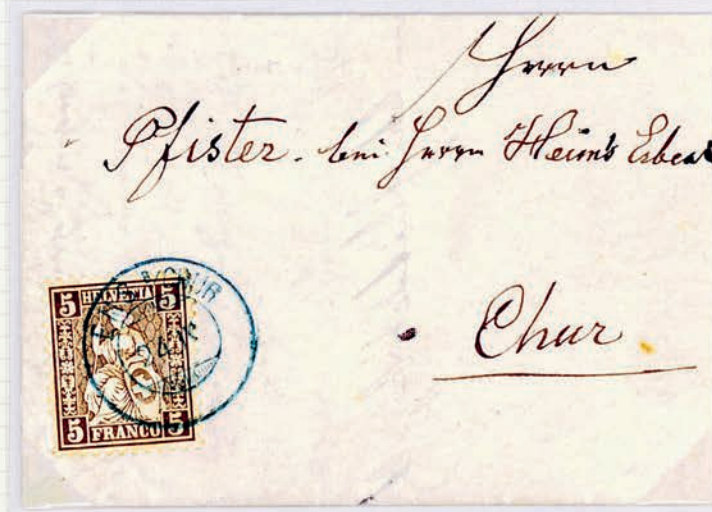 Herrn
Pfister. bei Herrn Heim's
Chur
5 HELVETIA 5
5 FRANCO 5